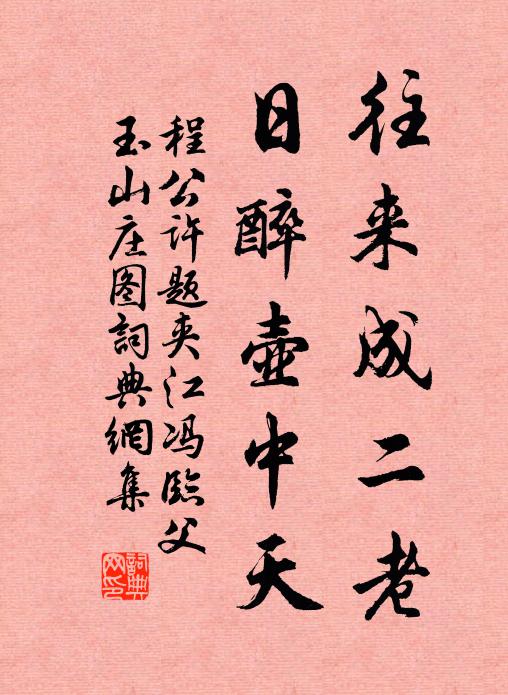 往来成二老
日醉壷中天
程公许题夹江冯临父
玉山庄图詞典網集
詞典网印